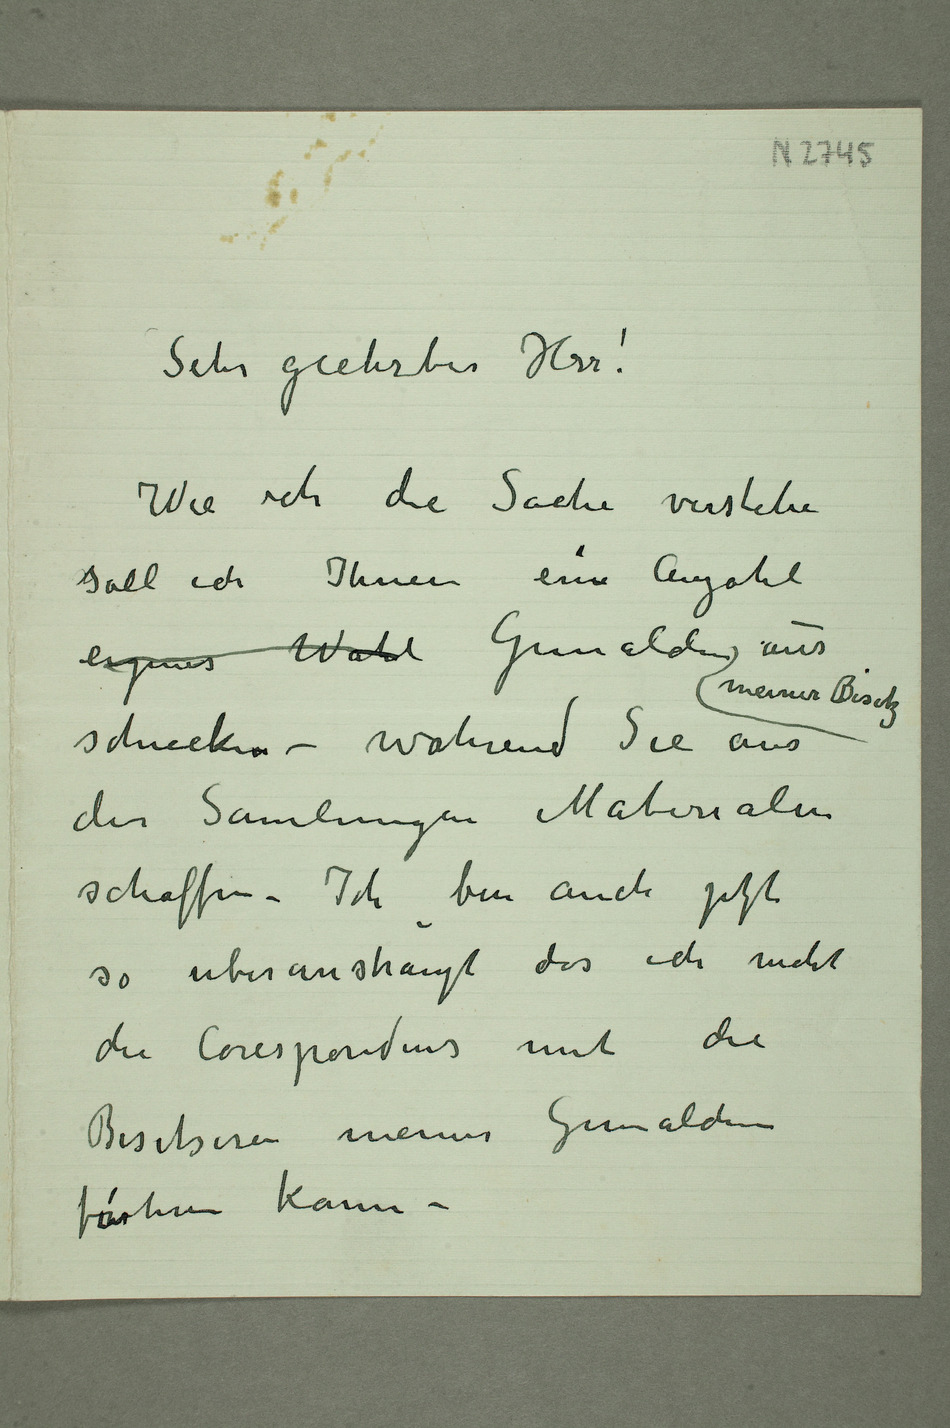 N 2745
Sehr geehrter Herr!
Wie ich die Sache verstehe
soll ich Ihnen eine Anzahl
eigner Wahl Gemälden aus
meiner Besitz
schicken – während Sie aus
der Samlungen Materialen
schaffen – Ich bin auch jetzt
so überansträngt das ich nicht
die Corespondens mit die
Besitseren meiner Gemälden
führen kann –